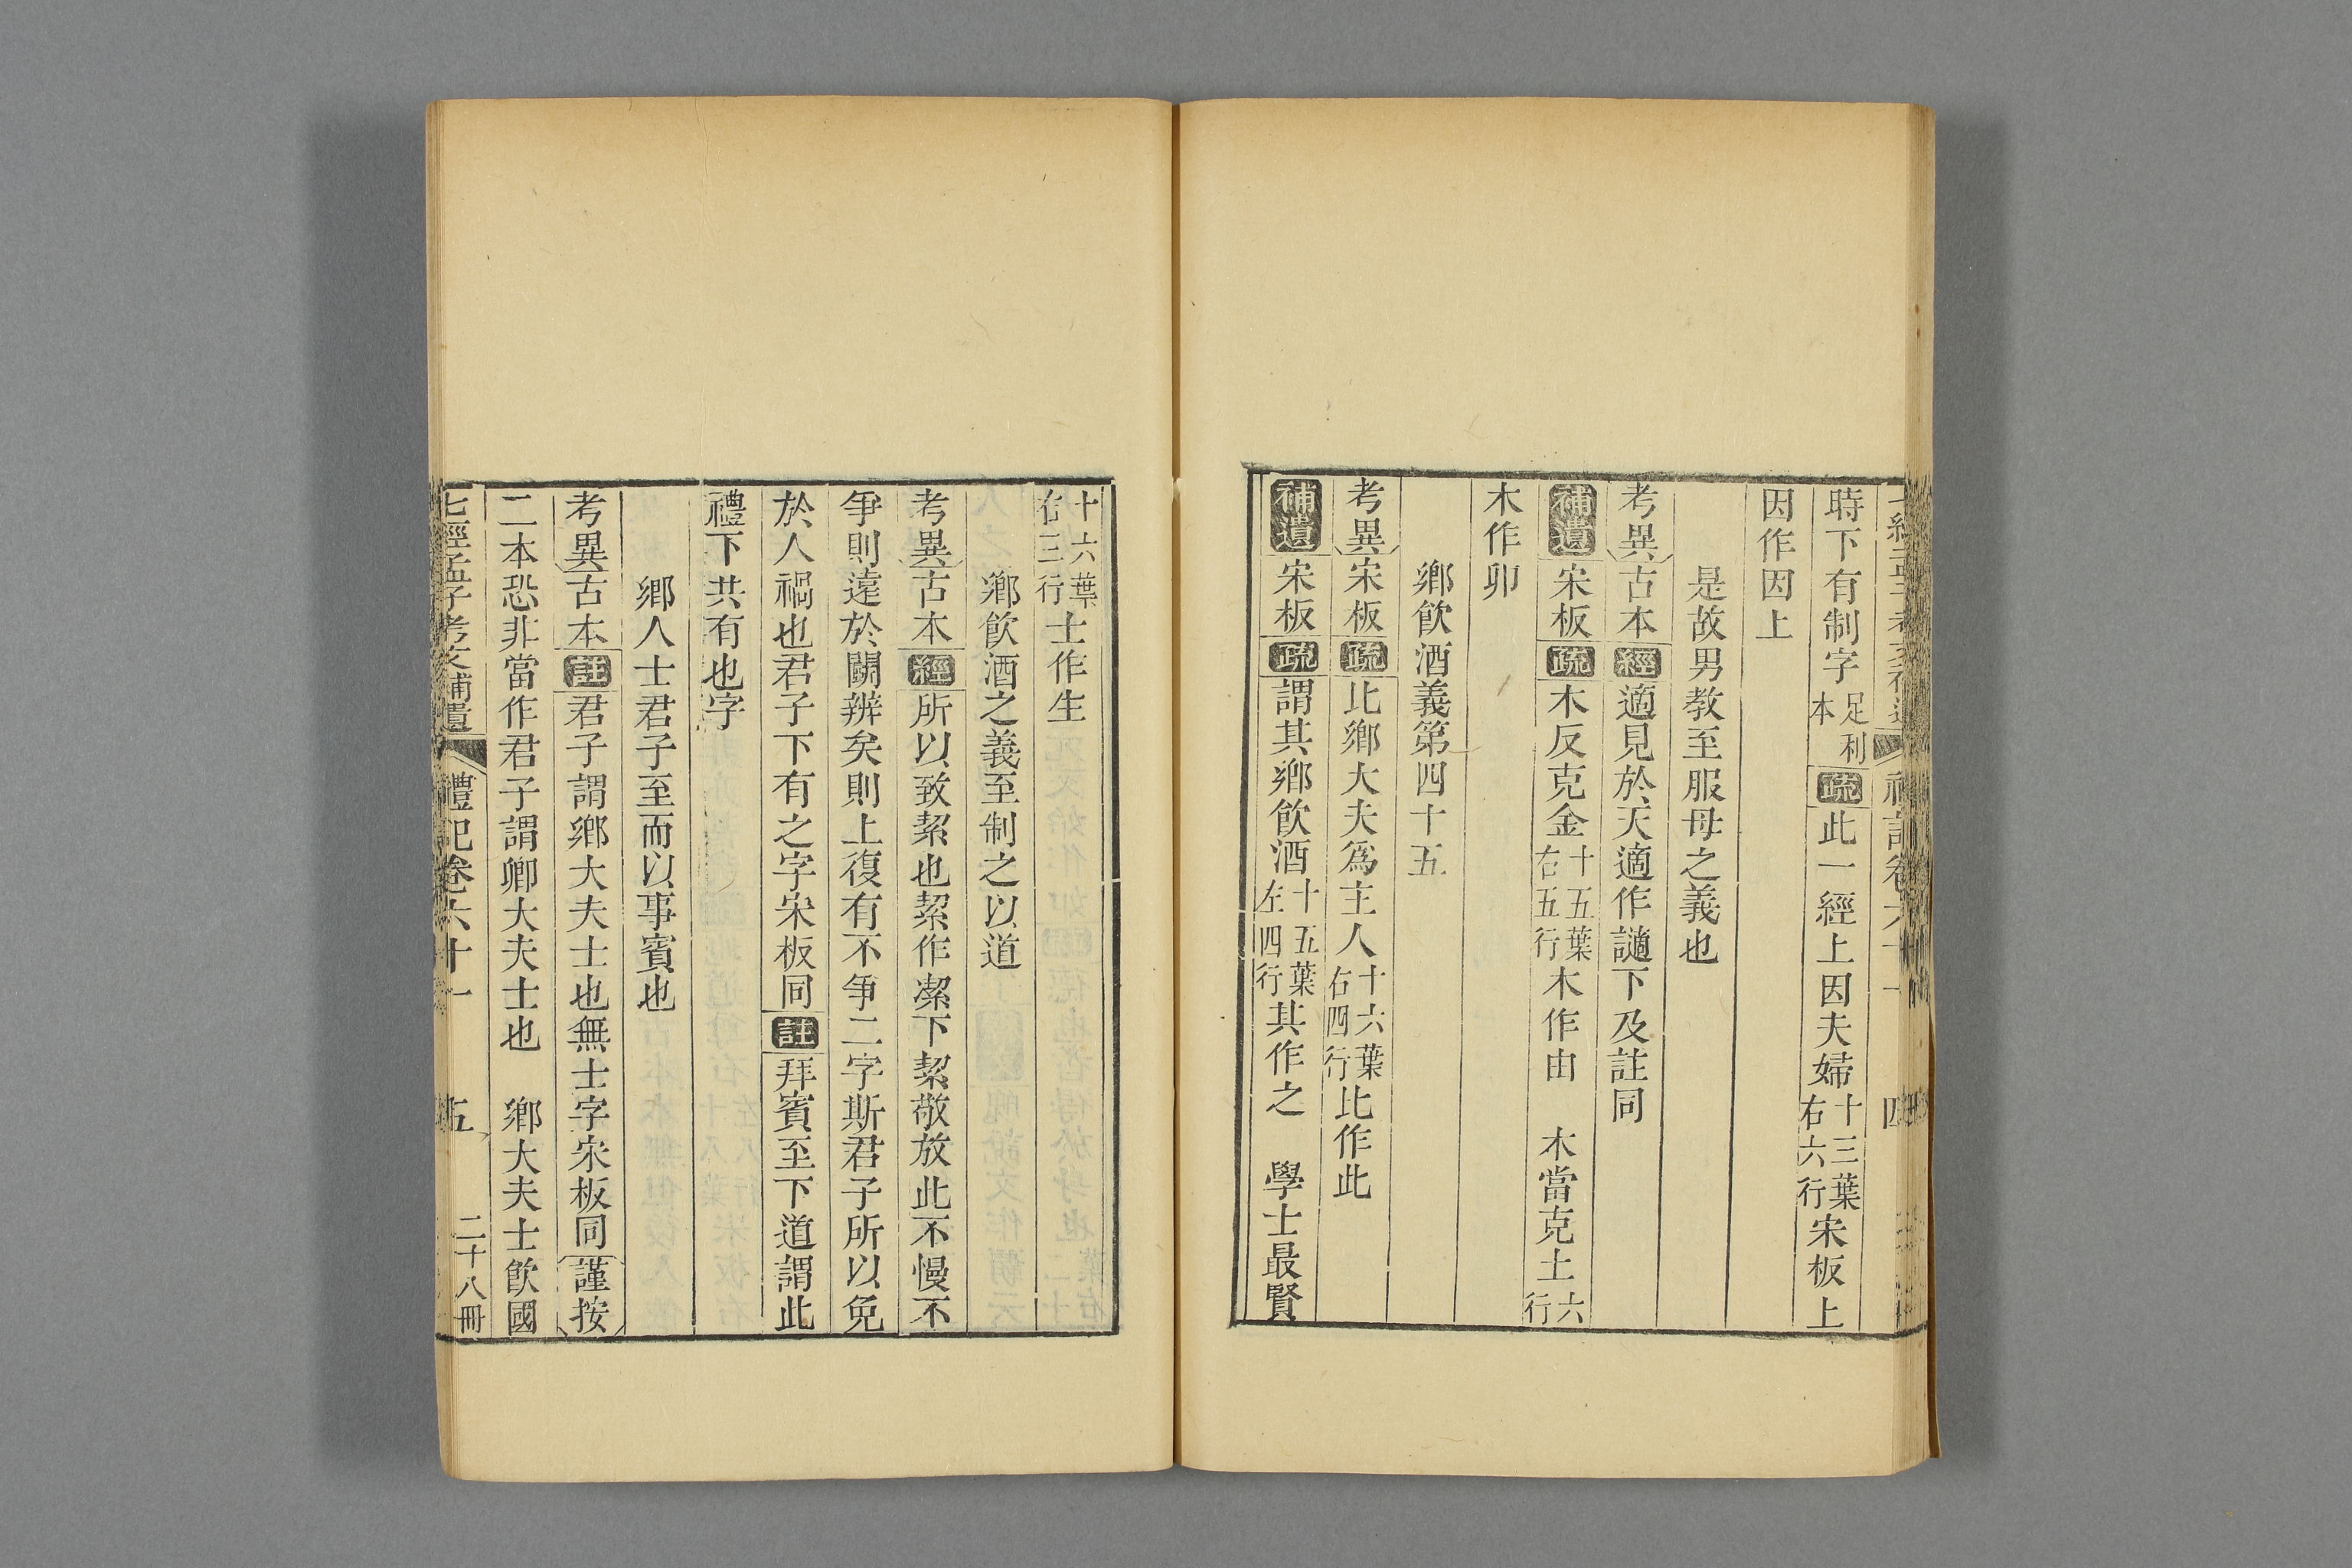 時下有制字足利本疏此一經上因夫婦十三葉右六行宋板上
因作因上
是故男教至服母之義也
考異古本經適見於天適作讁下及註同
補遺宋板疏木反克金十五葉右五行木作由　木當克土六行
木作卯
鄉飲酒義第四十五
考異宋板疏比鄉大夫爲主人十六葉右四行比作此
補遺宋板疏謂其鄉飲酒十五葉左四行其作之　學士最賢
十六葉右三行士作生
鄉飲酒之義至制之以道
考異古本經所以致絜也絜作潔下絜敬放此不慢不
爭則遠於鬭辨矣則上復有不爭二字斯君子所以免
於人禍也君子下有之字宋板同註拜賓至下道謂此
禮下共有也字
鄉人士君子至而以事賓也
考異古本註君子謂鄉大夫士也無士字宋板同謹按
二本恐非當作君子謂卿大夫士也　鄉大夫士飲國
七經孟子考文補遺　禮記卷六十一　五　二十八冊